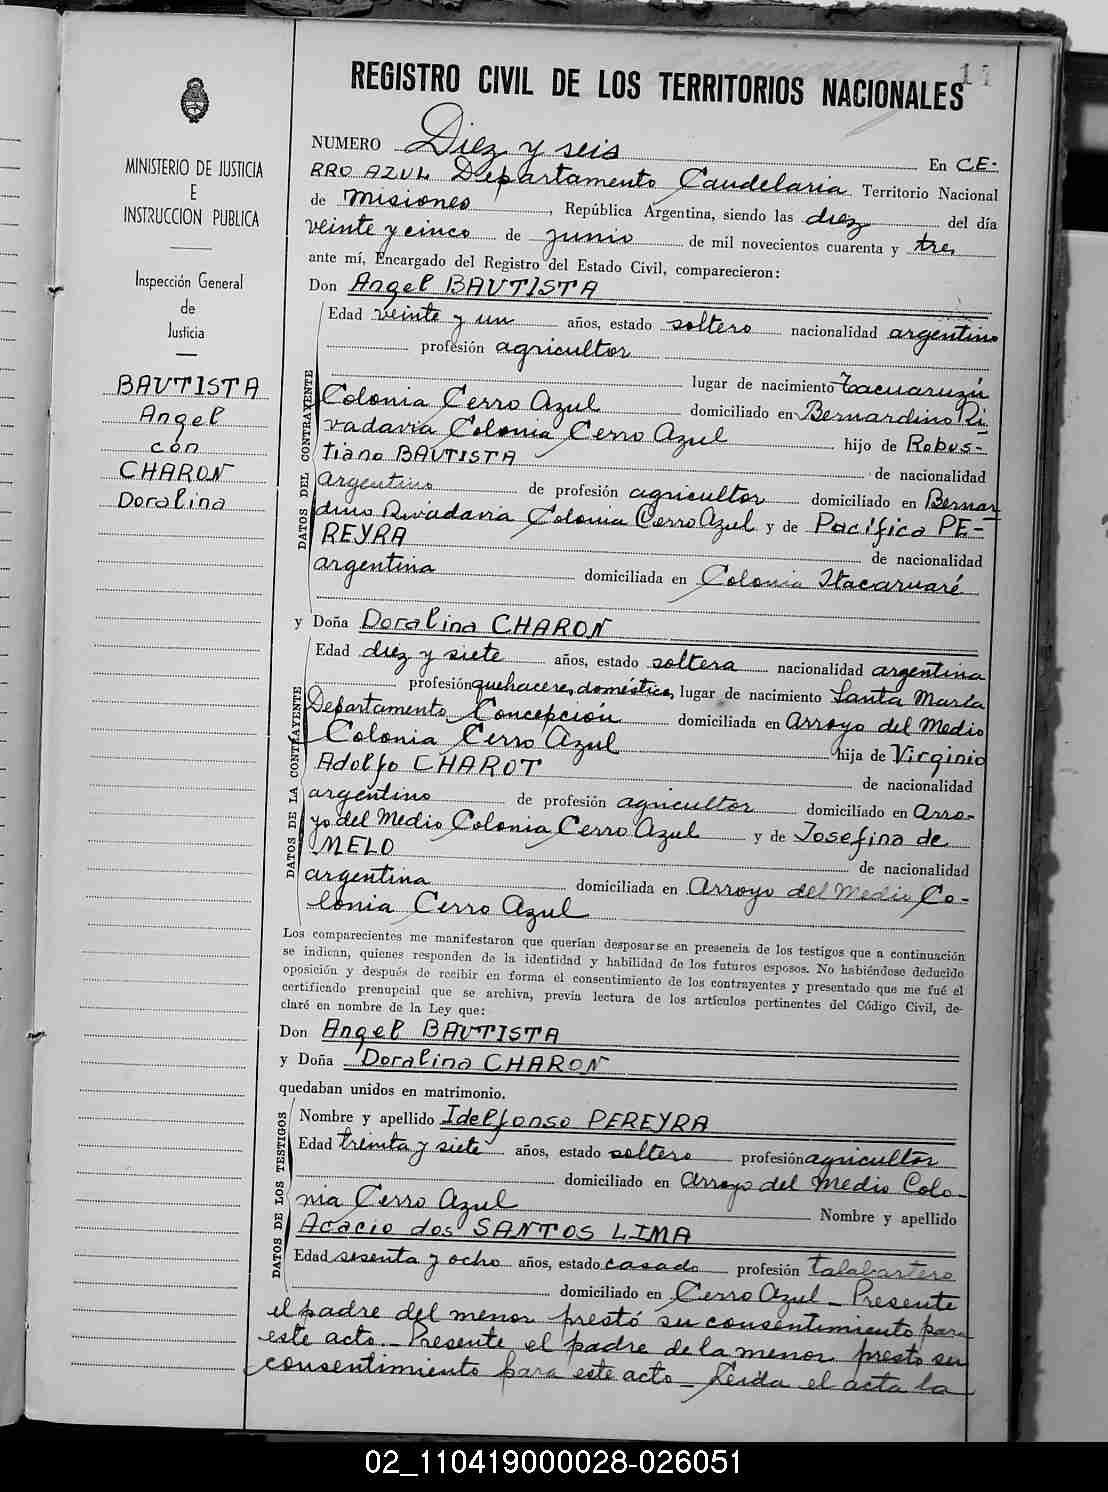 17
REGISTRO CIVIL DE LOS TERRITORIOS NACIONALES
MINISTERIO DE JUSTICIA
E
INSTRUCCION PUBLICA
Inspección General
de
Justicia
BAUTISTA
Angel
con
CHARON
Doralina
NUMERO Diez y seis En CE-
RRO AZUL Departamento Candelaria Territorio Nacional
de Misiones, República Argentina, siendo las diez del día
veinte y cinco de junio de mil novecientos cuarenta y tres
ante mí, Encargado del Registro del Estado Civil, comparecieron:
Don Angel BAUTISTA
DATOS DEL CONTRAYENTE
Edad veinte y un años, estado soltero nacionalidad argentino
profesión agricultor
lugar de nacimiento Tacuaruzú
Colonia Cerro Azul domiciliado en Bernardino Ri-
vadavia Colonia Cerro Azul hijo de Robus-
tiano BAUTISTA de nacionalidad
argentino de profesión agricultor domiciliado en Bernar
dino Rivadavia Colonia Cerro Azul y de Pacífica PE-
REYRA de nacionalidad
argentina domiciliada en Colonia Itacaruaré
y Doña Doralina CHARON
DATOS DE LA CONTRAYENTE
Edad diez y siete años, estado soltera nacionalidad argentina
profesión quehaceres domésticos, lugar de nacimiento Santa María
Departamento Concepción domiciliada en Arroyo del Medio
Colonia Cerro Azul hija de Virginio
Adolfo CHAROT de nacionalidad
argentino de profesión agricultor domiciliado en Arro-
yo del Medio Colonia Cerro Azul y de Josefina de
MELO de nacionalidad
argentina domiciliada en Arroyo del Medio Co-
lonia Cerro Azul
Los comparecientes me manifestaron que querían desposarse en presencia de los testigos que a continuación
se indican, quienes responden de la identidad y habilidad de los futuros esposos. No habiéndose deducido
oposición y después de recibir en forma el consentimiento de los contrayentes y presentado que me fué el
certificado prenupcial que se archiva, previa lectura de los artículos pertinentes del Código Civil, de-
claré en nombre de la Ley que:
Don Angel BAUTISTA
y Doña Doralina CHARON
quedaban unidos en matrimonio.
DATOS DE LOS TESTIGOS
Nombre y apellido Idelfonso PEREYRA
Edad treinta y siete años, estado soltero profesión agricultor
domiciliado en Arroyo del Medio Colo-
nia Cerro Azul Nombre y apellido
Acacio dos SANTOS LIMA
Edad sesenta y ocho años, estado casado profesión talabartero
domiciliado en Cerro Azul - Presente
el padre del menor prestó su consentimiento para
este acto.- Presente el padre de la menor presto su
consentimiento para este acto - Leida el acta la
02_110419000028-026051